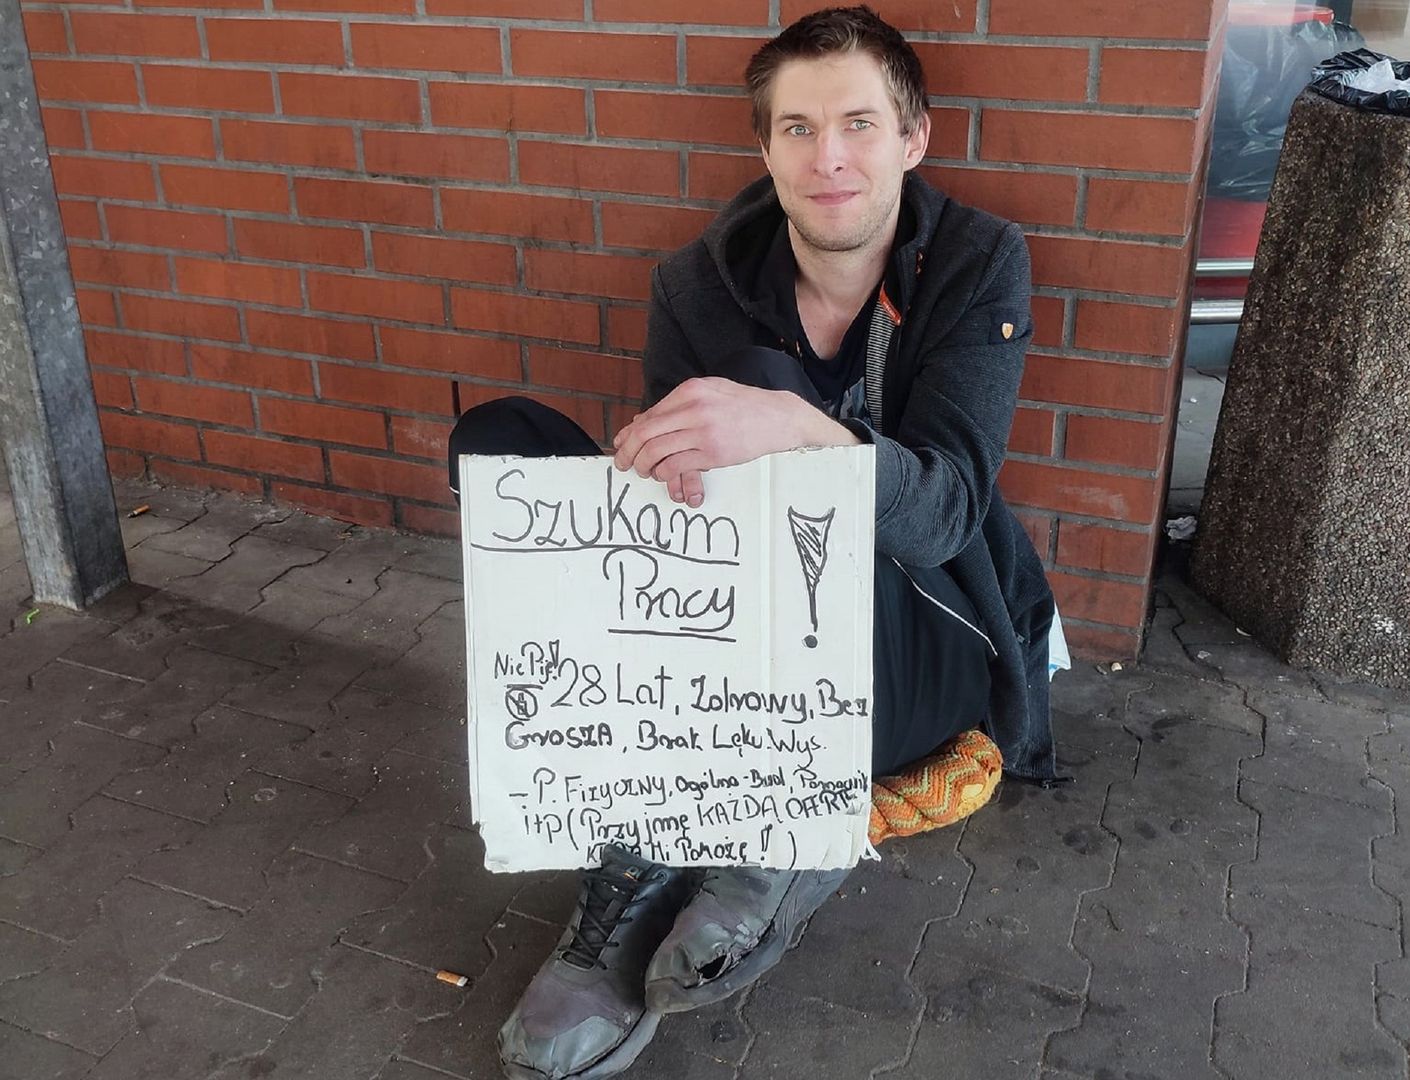 Szukam
Pracy !
Nie Piję!
28 Lat, Zdrowy, Bez
Grosza, Brak Lęku. Wys.
- P. Fizyczny, Ogólno-Bud, Pomocnik
itp (Przyjmę KAŻDĄ OFERTĘ
KTÓRA Mi Pomoże! )